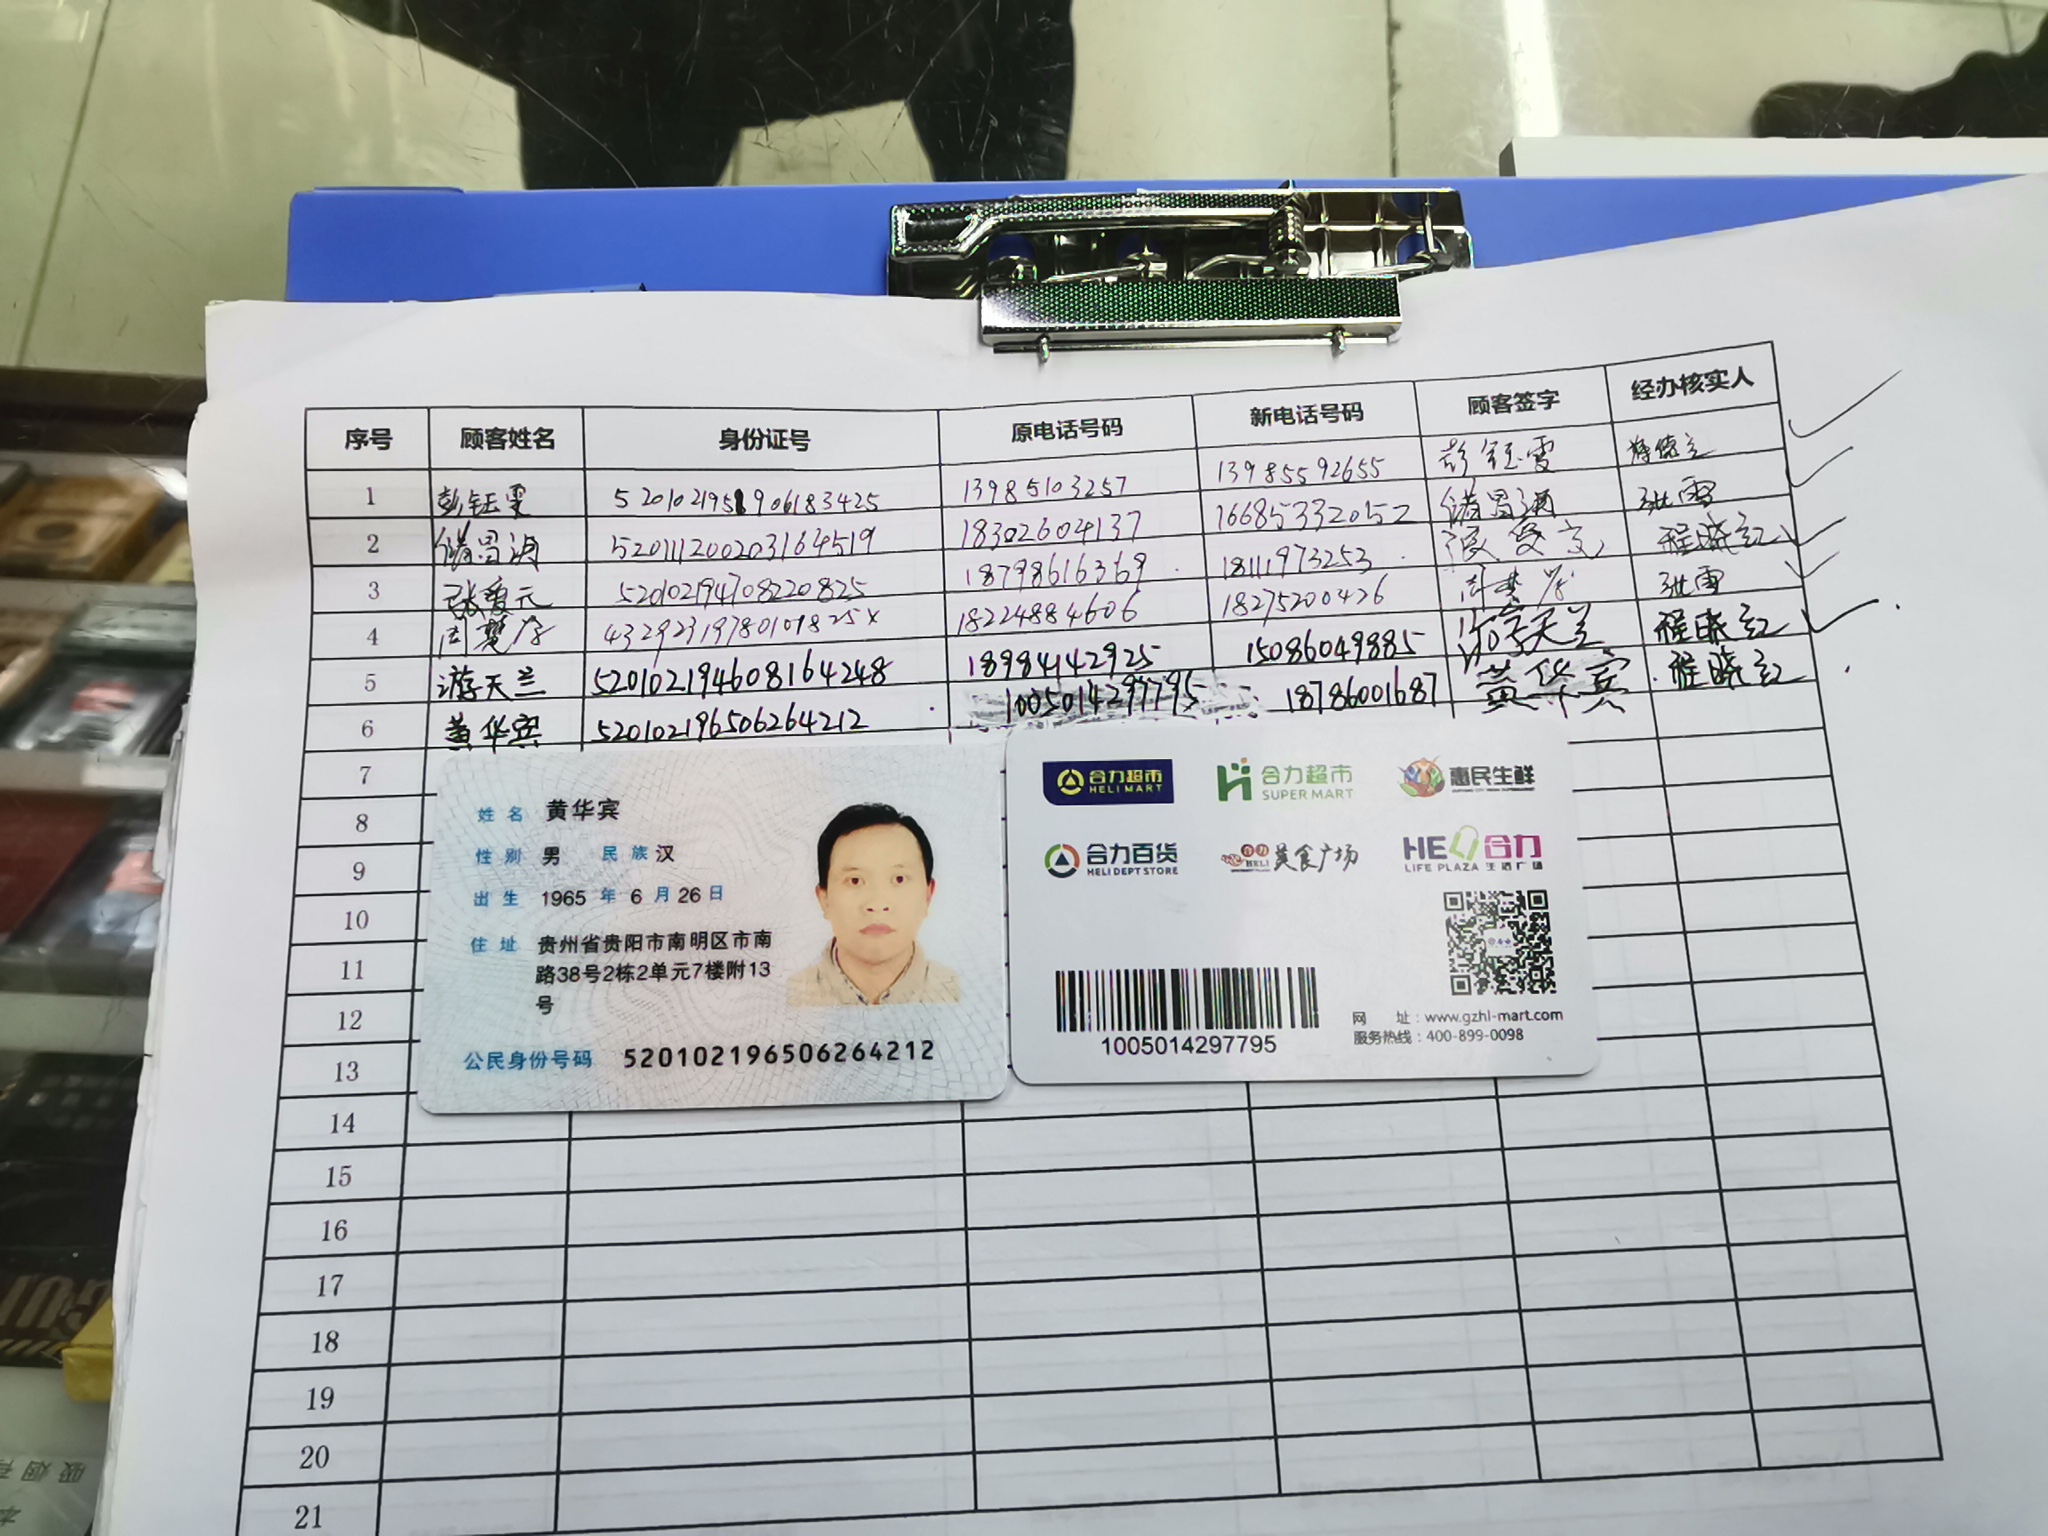 序号 顾客姓名 身份证号 原电话号码 新电话号码 顾客签字 经办核实人
1 彭钰雯 13985103257 13985592655 彭钰雯
2 520111200203164519 18302604137 16685332052 张雪
3 张爱元 520102194708220825 18798616369 18111973253 程晓红
4 18224884606 18275200426 张雪
5 游天兰 520102194608164248 18984142925 15086049885 游天兰 程晓红
6 黄华宾 520102196506264212 1005014297795 18786001687 黄华宾 程晓红
7
8
9
10
11
12
13
14
15
16
17
18
19
20
21
姓名 黄华宾
性别 男 民族 汉
出生 1965 年 6 月 26 日
住址 贵州省贵阳市南明区市南
路38号2栋2单元7楼附13
号
公民身份号码 520102196506264212
合力超市
HELI MART
合力超市
SUPER MART
惠民生鲜
合力百货
HELI DEPT STORE
合力
HELI
美食广场
HELI合力
LIFE PLAZA 生活广场
1005014297795
网 址：www.gzhl-mart.com
服务热线：400-899-0098